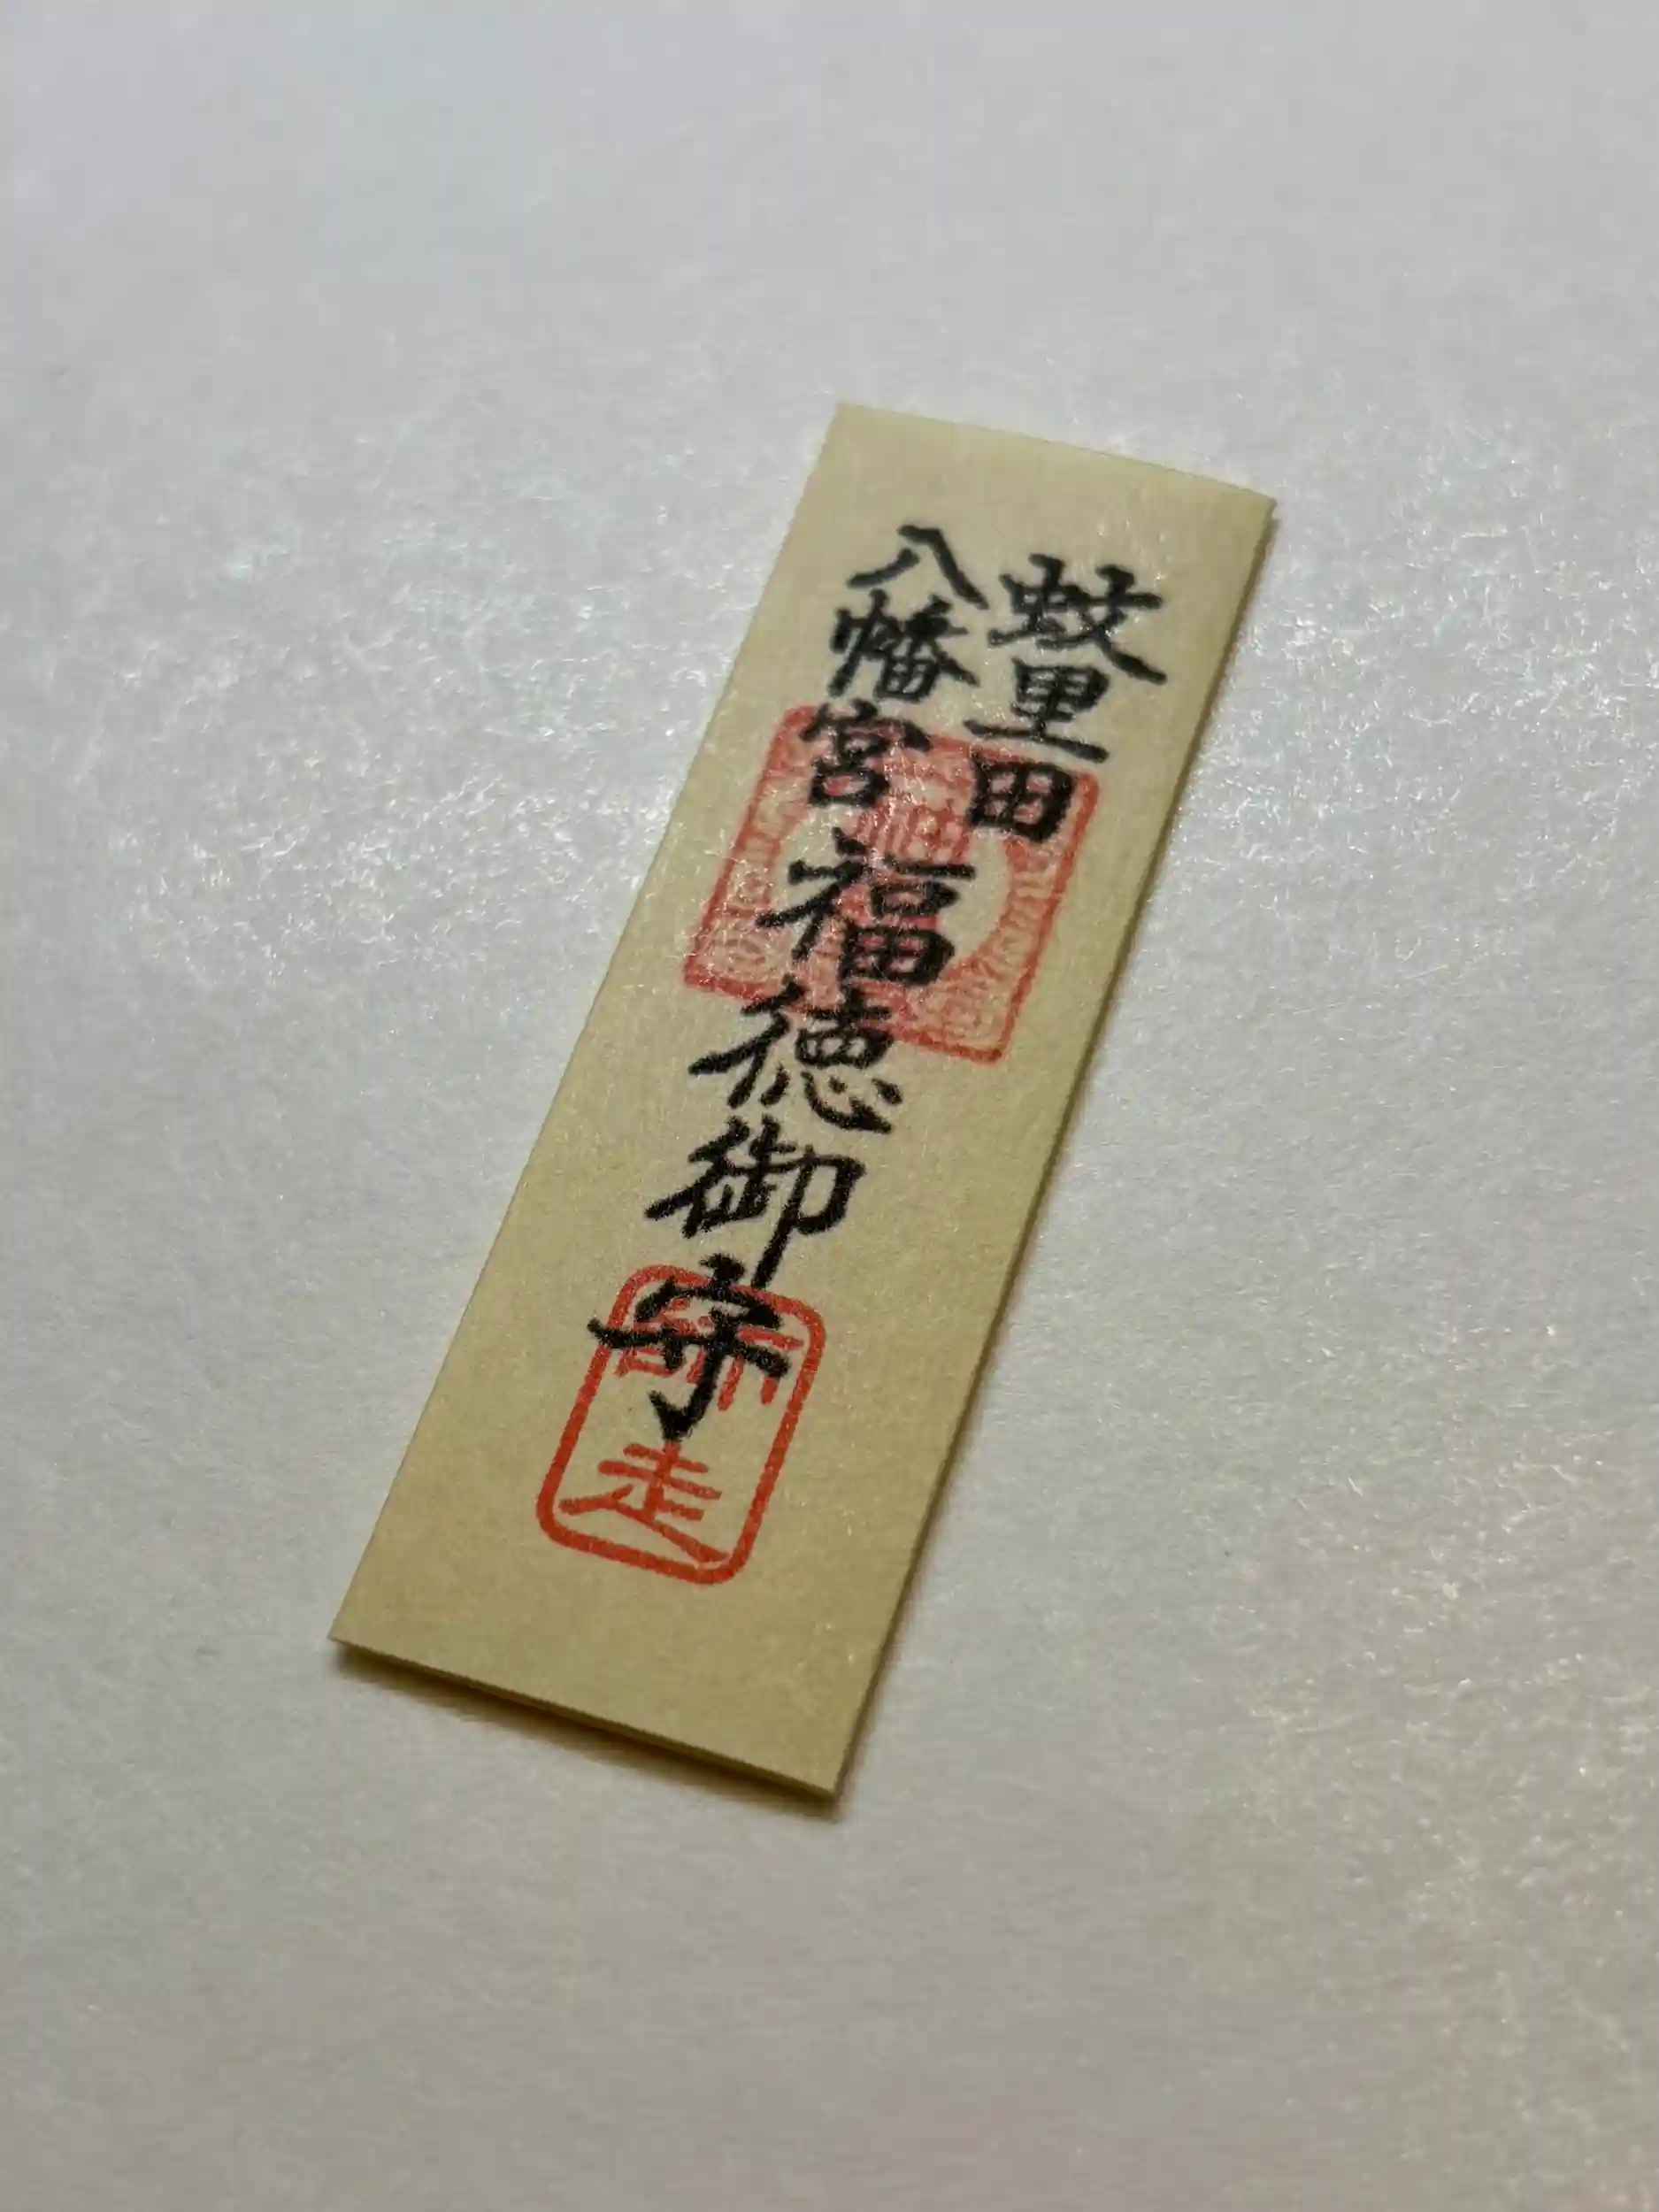 蛟里田
八幡宮
福徳御守
走